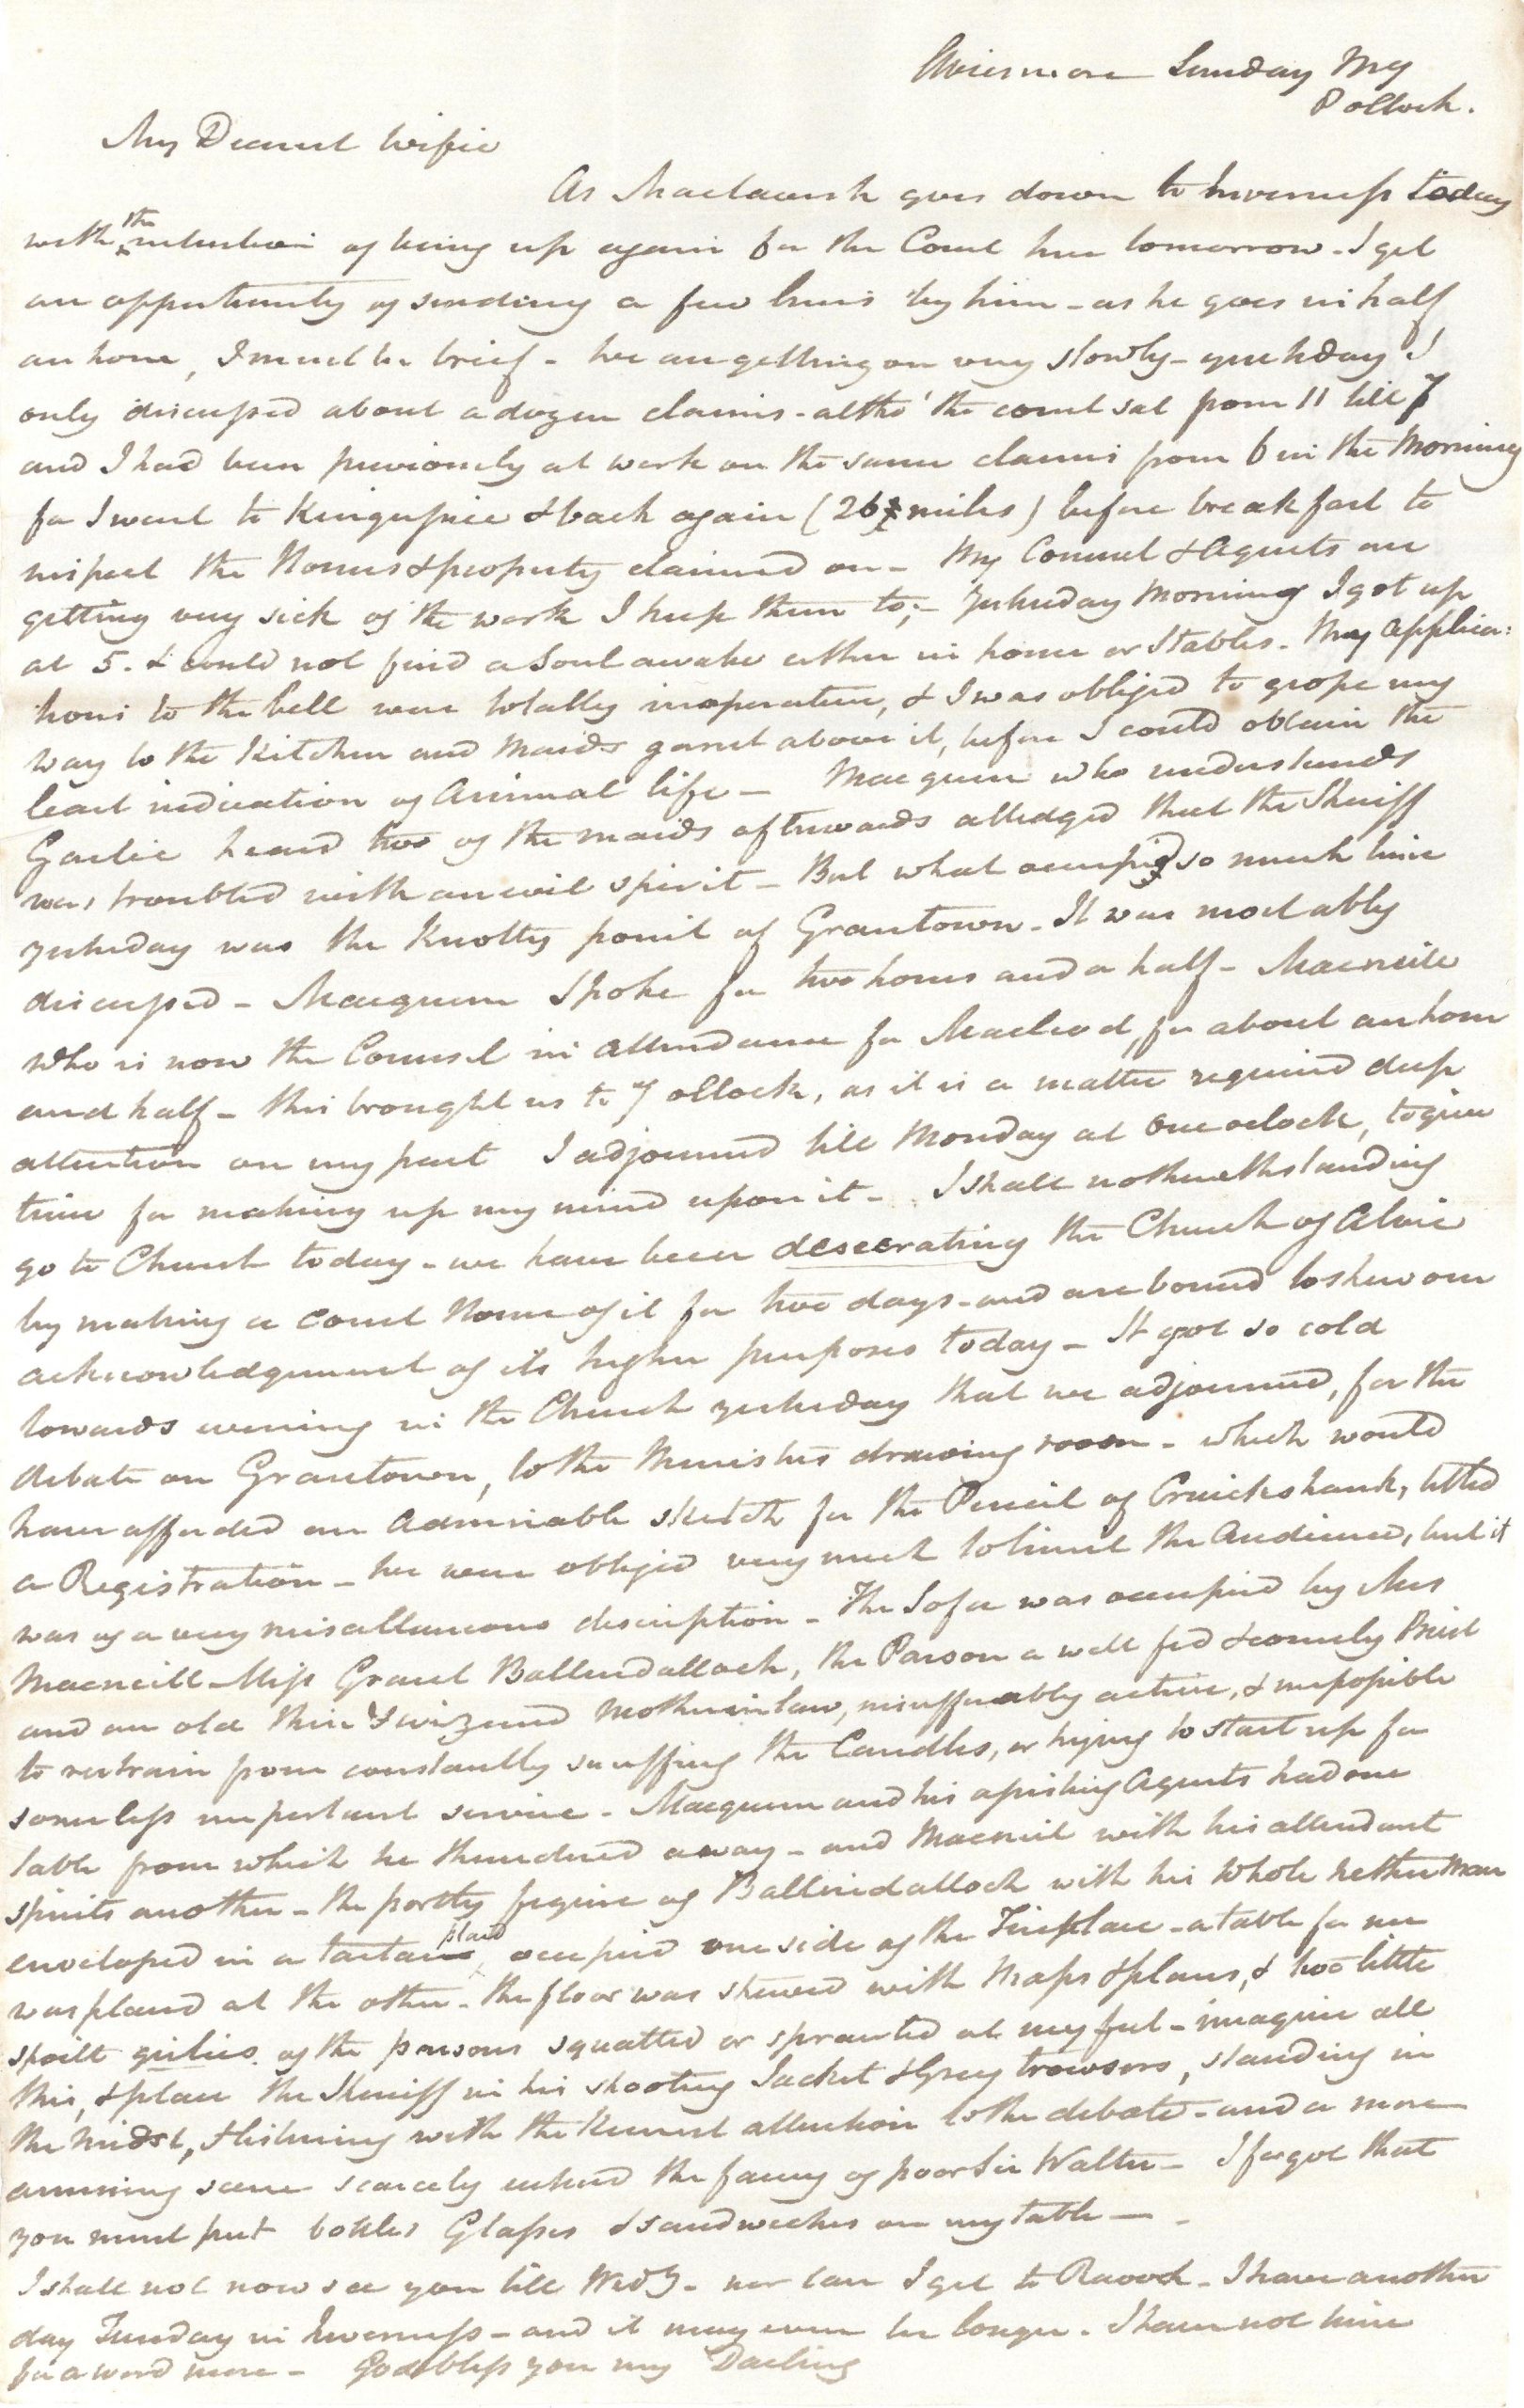 Aviemore Sunday Mg
8 oClock.
My Dearest Wifie
As Mactavish goes down to Inverness today
with the intention of being up again for the Court here tomorrow. I get
an opportunity of sending a few lines by him - as he goes in half
an hour, I must be brief - We are getting on very slowly - yesterday I
only discussed about a dozen claims - altho' the court sat from 11 till 7
and I had been previously at work on the same claims from 6 in the Morning
for I went to Kingussie & back again (26 miles) before breakfast to
inspect the Houses & property claimed on - My Counsel & Agents are
getting very sick of the work I keep them to; - Yesterday Morning I got up
at 5. & could not find a Soul awake either in house or Stables. My applica=
tions to the bell were totally inoperative, & I was obliged to grope my
way to the Kitchen and Maids garret above it, before I could obtain the
least indication of Animal life - Macqueen who understands
Gaelic heard two of the maids afterwards alledged that the Sheriff
was troubled with an evil spirit - But what occupied so much time
yesterday was the Knotty point of Grantown. It was most ably
discussed - Macqueen Spoke for two hours and a half - Macneile
who is now the Counsel in attendance for Macleod, for about an hour
and half - this brought us to 7 oClock, as it is a matter required deep
attention on my part I adjourned till Monday at One oclock, to give
time for making up my mind upon it - I shall nothwithstanding
go to Church today - we have been desecrating the Church of Alvie
by making a Court House of it for two days - and are bound to shew our
acknowledgement of its higher purposes today - It got so cold
towards evening in the Church yesterday that we adjourned, for the
debate on Grantown, to the Ministers drawing room - which would
have afforded an Admirable sketch for the Pencil of Cruickshank, titled
a Registration - We were obliged very much to limit the Audience, but it
was of a very misallaneous description - The Sofa was occupied by Mrs
Macneill - Miss Grant Ballendalloch, the Parson a well fed & comely Priest
and an old thin & wizened Mother in law, insufferably active, & impossible
to restrain from constantly snuffing the Candles, or trying to start up for
some less important service - Macqueen and his apishing Agents had one
table from which he thundered away - and Macneil with his attendant
spirits another - the portly figure of Ballindalloch with his whole nether man
enveloped in a tartan plaid, occupied one side of the Fireplace - a table for me
was placed at the other - the floor was strewed with Maps & plans, & two little
spoilt gilies of the parsons squatted or sprawled at my feet - imagine all
this, & place the Sheriff in his shooting Jacket & Grey trowsers, standing in
the midst, & listening with the keenest attention to the debate - and a more
amusing scene scarcely entered the fancy of poor Sir Walter - I forgot that
you must put bottles Glasses & sandwiches on my table -
I shall not now see you till Wedy - nor can I get to - I have another
day Tuesday in Inverness - and it may even be longer. I have not time
for a word more - God bless you my Darling